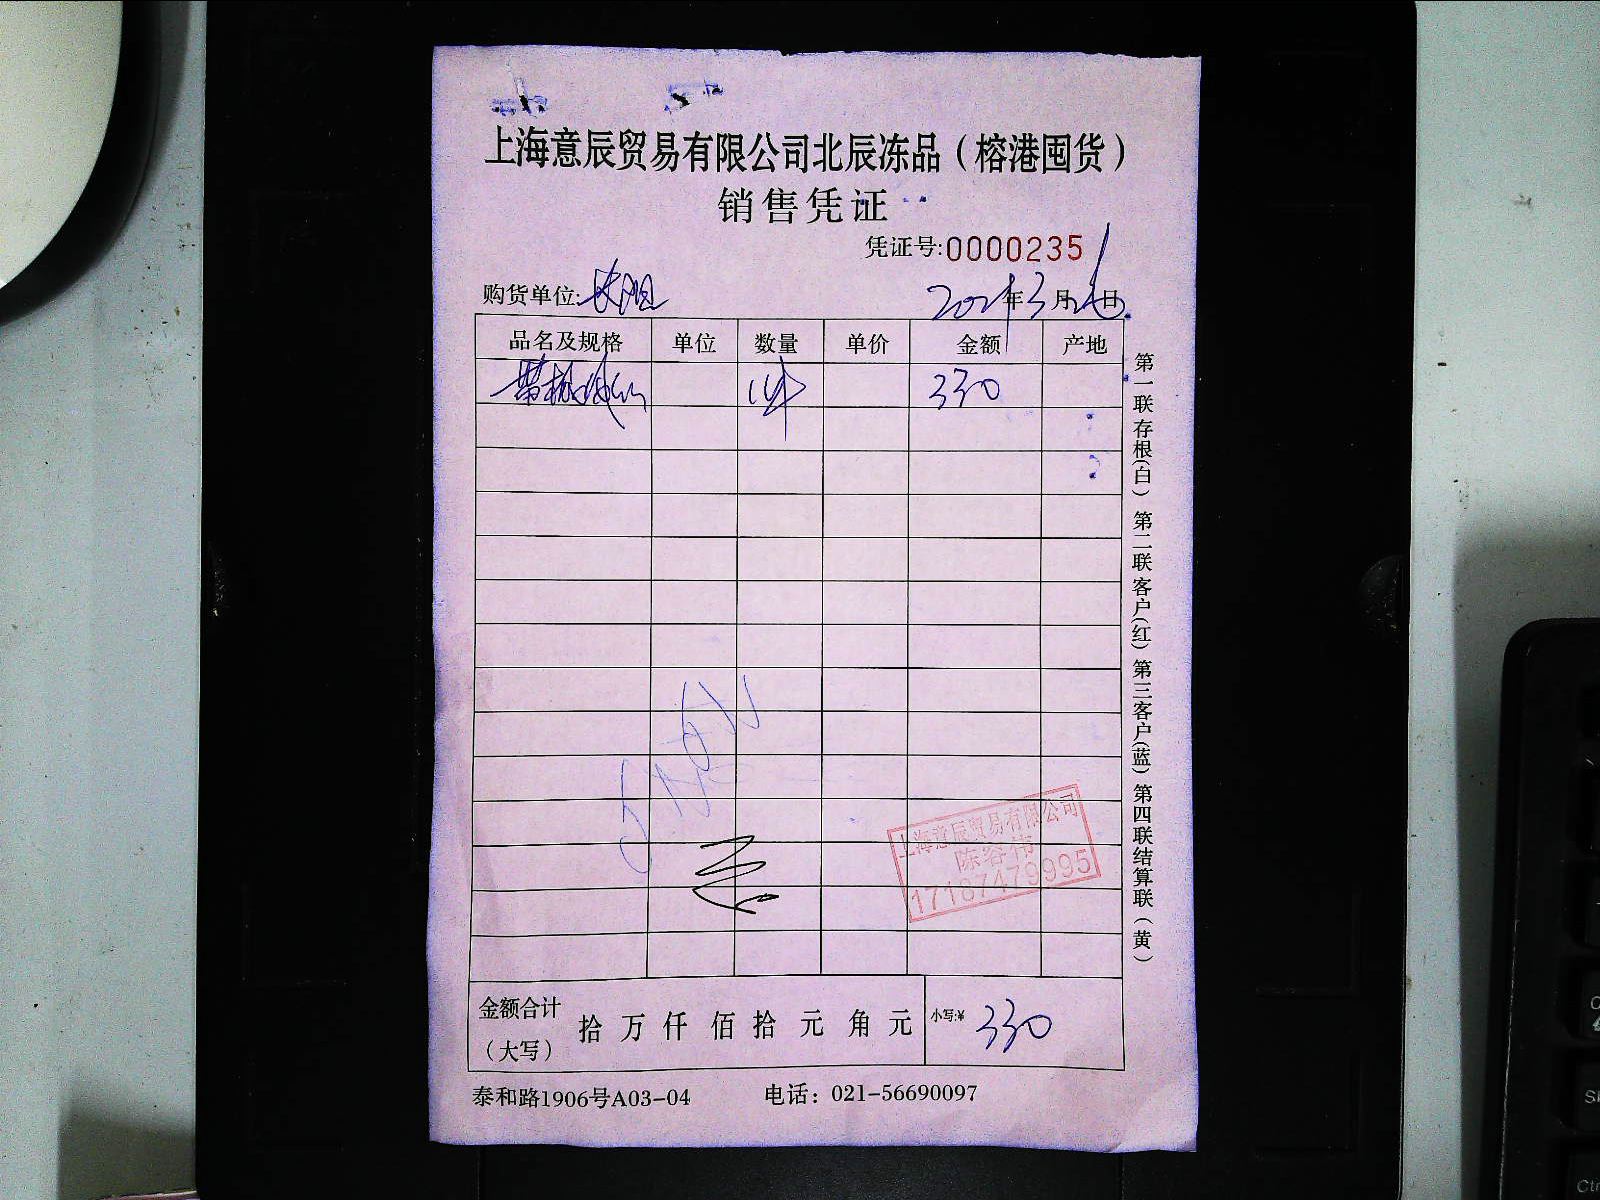 上海意辰贸易有限公司北辰冻品（榕港囤货）
销售凭证
凭证号:0000235
购货单位:
年3月26日
品名及规格 单位 数量 单价 金额 产地
1件 330
第一联存根(白) 第二联客户(红) 第三客户(蓝) 第四联结算联(黄)
上海意辰贸易有限公司
陈容伟
17187479995
金额合计（大写） 拾 万 仟 佰 拾 元 角 元 小写:¥ 330
泰和路1906号A03-04 电话：021-56690097